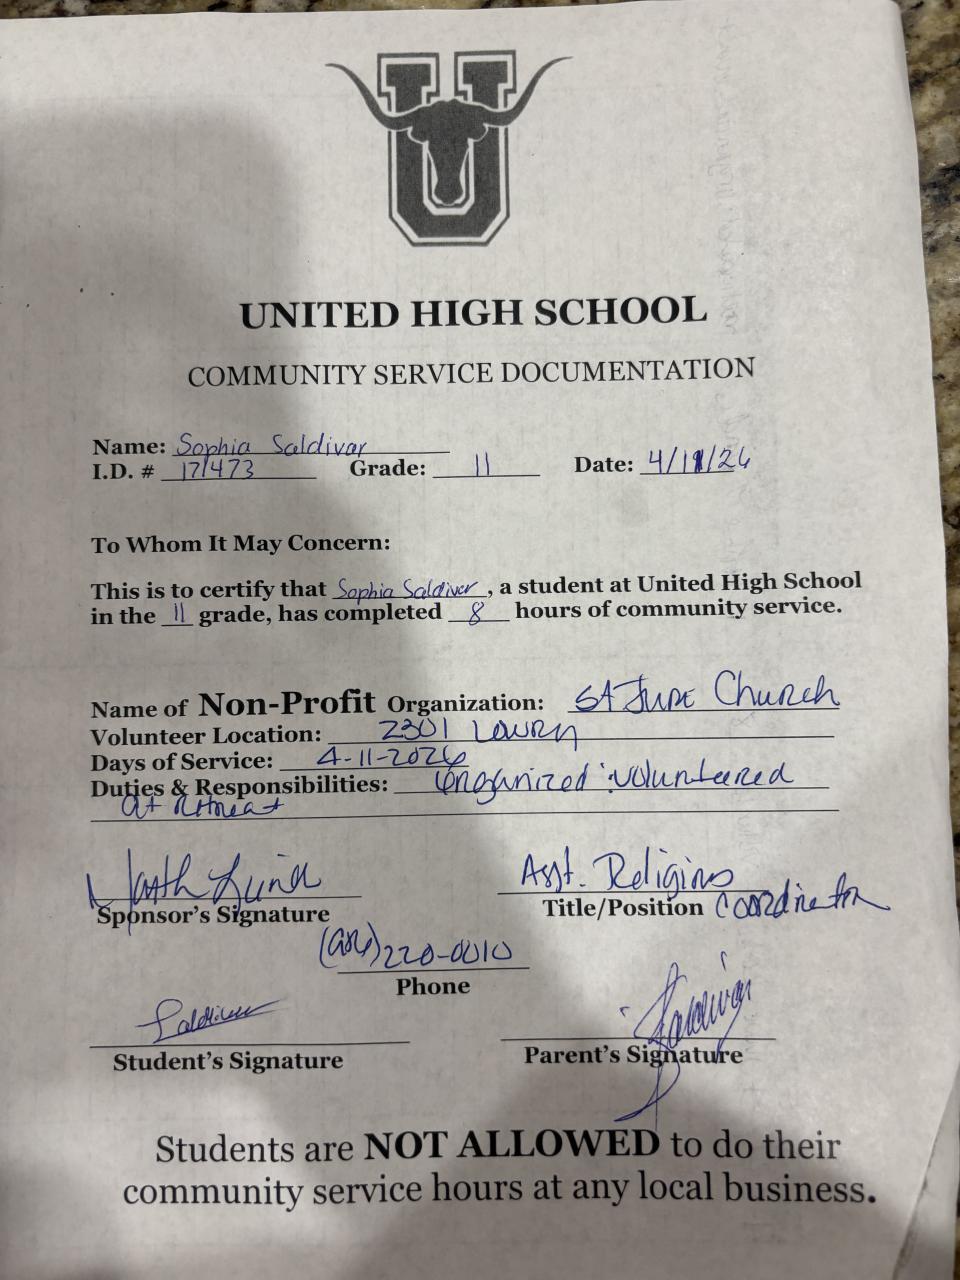 U
UNITED HIGH SCHOOL
COMMUNITY SERVICE DOCUMENTATION
Name: Sophia Saldivar
I.D. # 171473 Grade: 11 Date: 4/11/26
To Whom It May Concern:
This is to certify that Sophia Saldivar, a student at United High School
in the 11 grade, has completed 8 hours of community service.
Name of Non-Profit Organization: St Jude Church
Volunteer Location: 2301 Lowry
Days of Service: 4-11-2026
Duties & Responsibilities: Organized volunteered
at retreat
Sponsor's Signature
Asst. Religious
Title/Position Coordinator
220-0010
Phone
Saldivar
Student's Signature
Saldivar
Parent's Signature
Students are NOT ALLOWED to do their
community service hours at any local business.